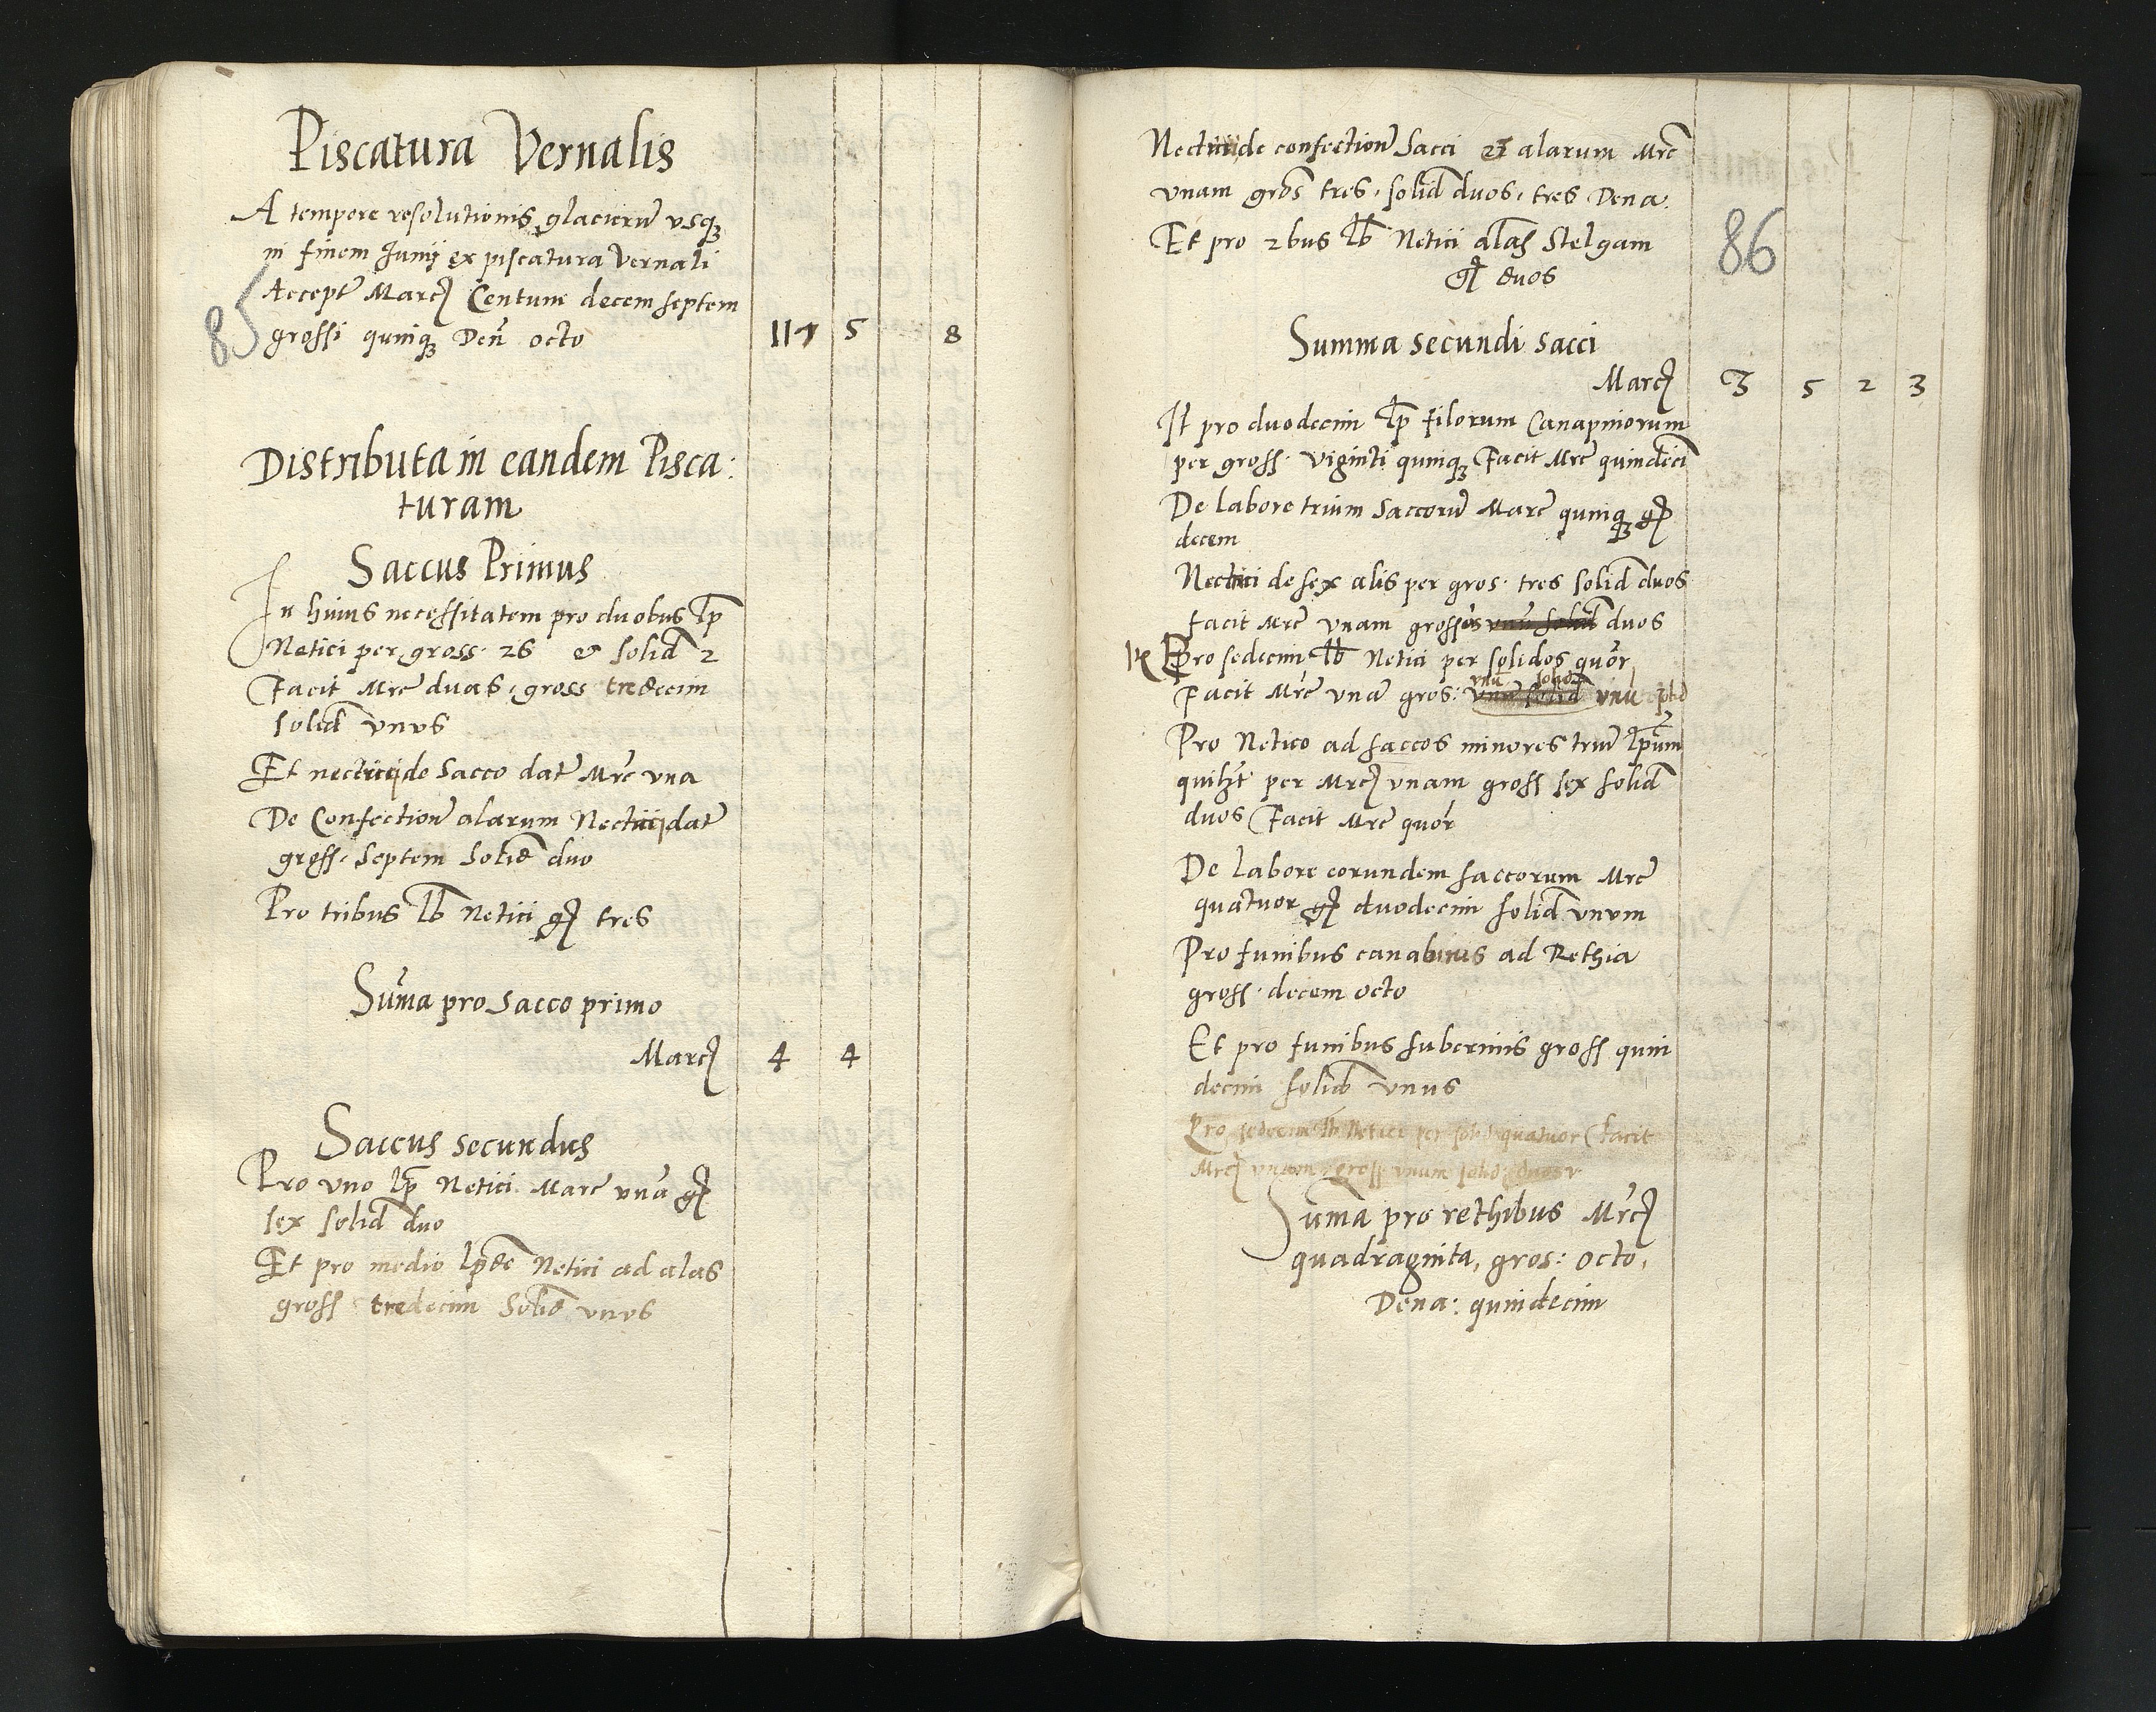 Piscatura Vernalis
A tempore resolutionis glacierū usq3
in finem Junij ex piscatura Vernali
Accept Marc Centum decem septem
85 grossi quinq3 Den octo 117 5 8
Distributa in eandem Pisca:
turam
Saccus Primus
In huius necessitatem pro duobus lp
Netici per gross. 26 & solid 2
Facit Mrc duas, gross tredecim
solid unus
Et necticijde Sacco dat Mrc una
De Confection alarum Necticijdat
gross. septem Solid duo
Pro tribus lb Netici gr tres
Sūma pro Sacco primo
Marc 4 4
Saccus secundus
Pro uno lp Netici Marc unā gr
sex solid duo
Et pro medio lpde Netici ad alas
gross tredecim Solid unus
Necticide confection Sacci et alarum Mrc
unam gros tres, solid duos, tres Dena.
Et pro 2bus lb Netici alas Stelgam 86
gr duos
Summa secundi sacci
Marc 3 5 2 3
It pro duodecim lp filorum Canapiniorum
per gross. viginti quinq3 Facit Mrc quindeci
De labore trium Saccorū Marc quinq3 gr
decem
Nectici de sex alis per gros. tres solid duos
facit Mrc unam grossos unū solid duos
Pro sedecim lb Netici per solidos quor
unū solid
Facit Mrc unā gros: unū solid unū
Pro Netico ad saccos minores triū lpum
quilzt per Mrc unam gross sex solid
duos Facit Mrc quor
De labore eorundem saccorum Mrc
quatuor gr duodecim solid unum
Pro funibus canabinis ad Rethia
gross. decem octo
Et pro funibus suberinis gross quin
decim solid unus
Pro sedecim lb Netici per sol quatuor Facit
Mrc unam gross unum solid duos
Suma pro rethibus Mrc
quadraginta, gros: octo,
Dena: quindecim